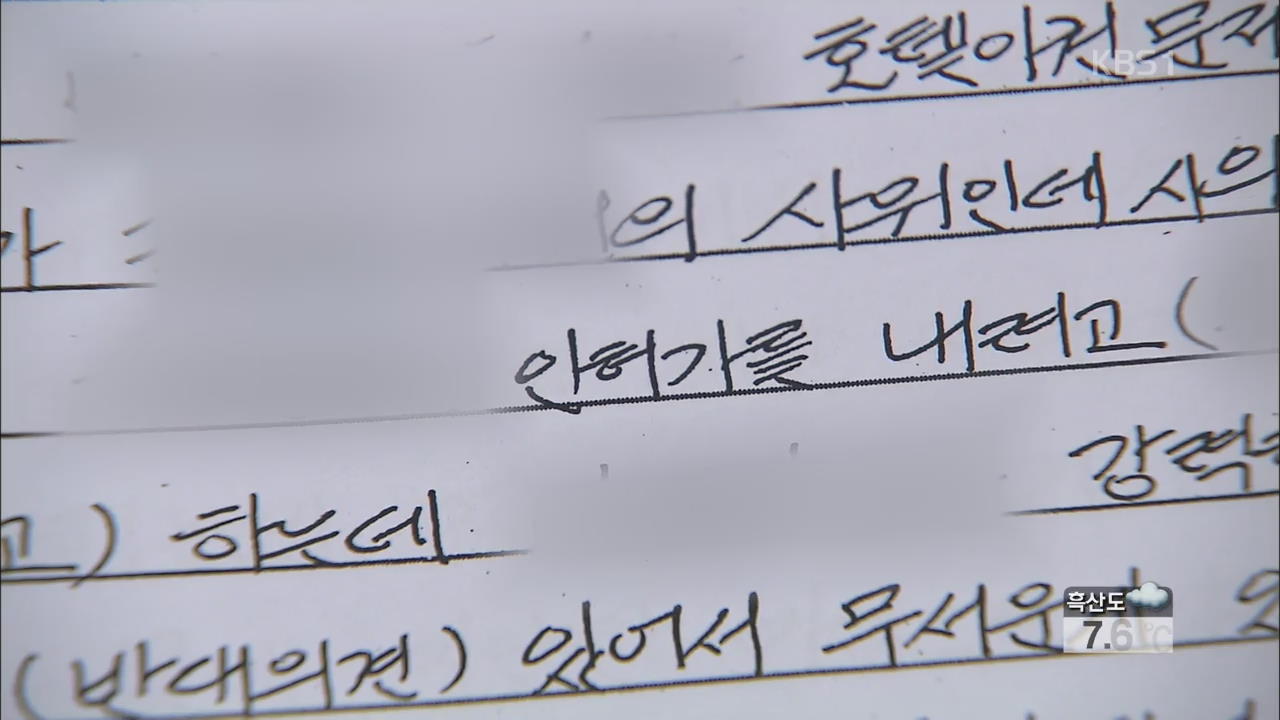 호텔이건 문제
KBS1
가
의 사위인데 사위
인허가를 내려고 (
고) 하는데
강력
(반대의견) 있어서 무서운
흑산도
7.6 ℃